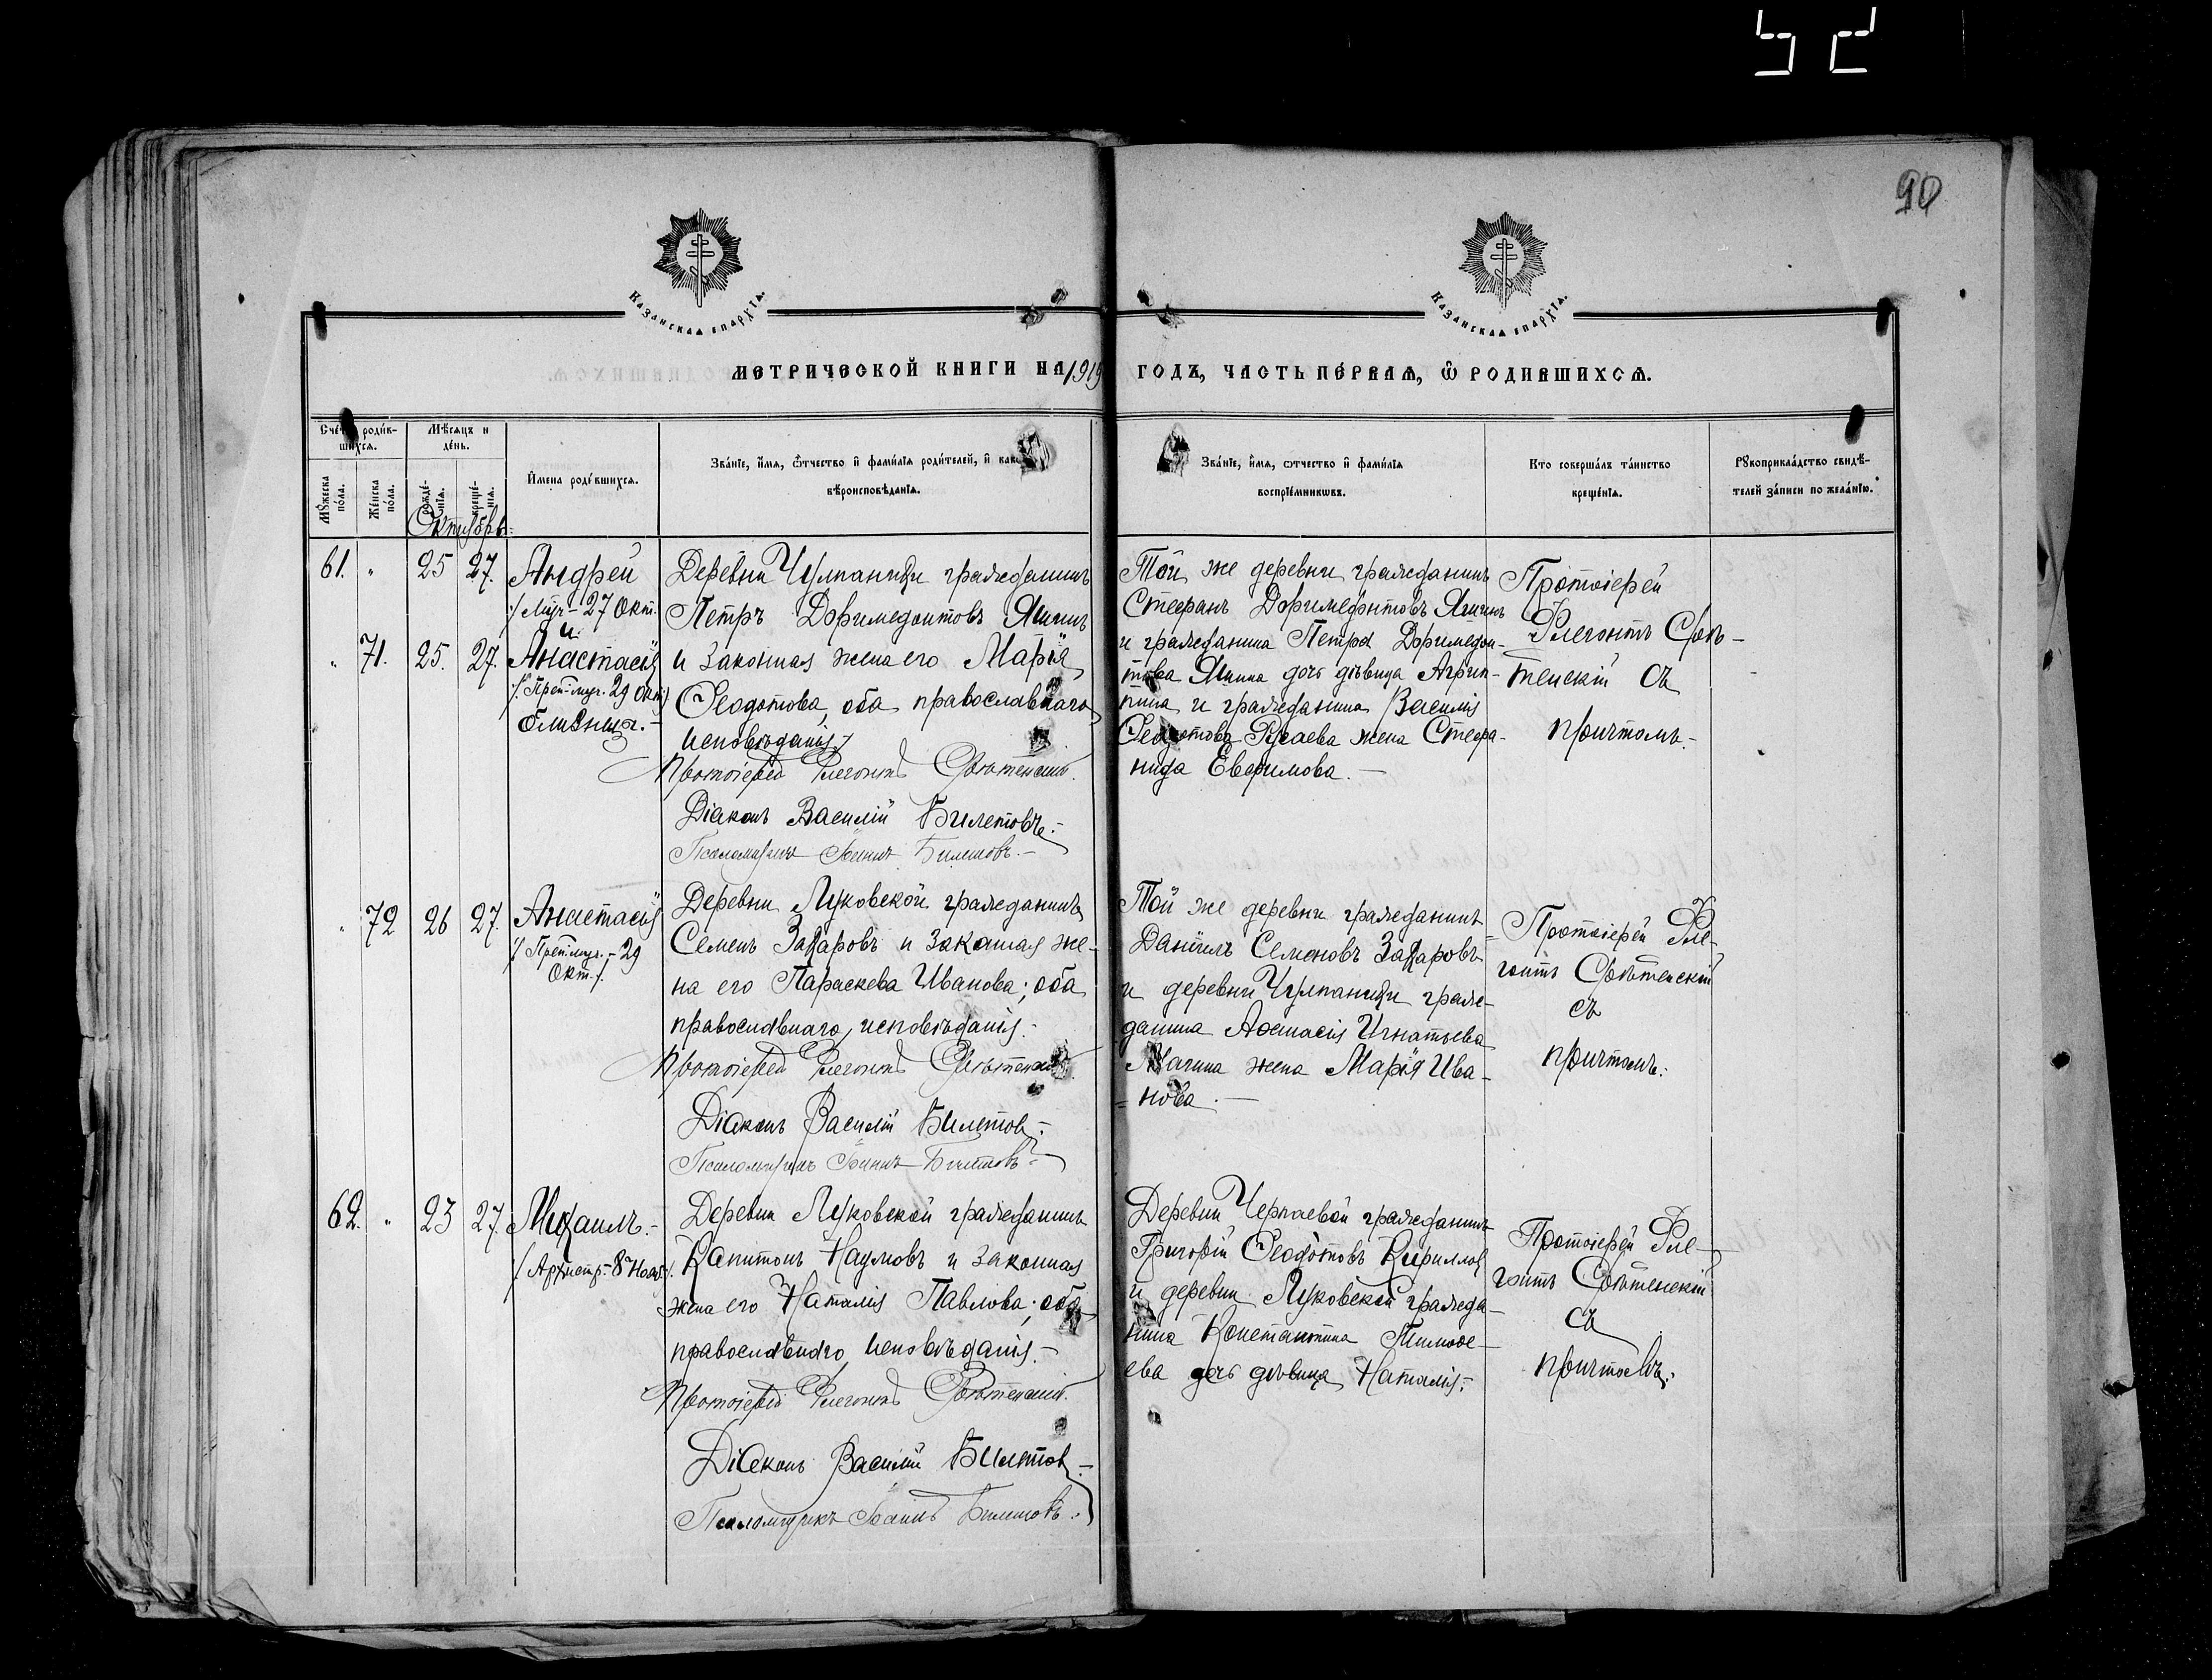 90
Казанская Епархїя.
Казанская Епархїя.
МЕТРИЧЕСКОЙ КНИГИ НА 1919 ГОДЪ, ЧАСТЬ ПЕ́РВАЯ, Ѽ РОДИВШИХСЯ.
Сче́тъ роди́вшихся.
Мѣ́сяцъ и де́нь.
Му́жеска по́ла.
Же́нска по́ла.
рожде́нїя.
креще́нїя.
И́мена роди́вшихся.
Зва́нїе, и́мя, ѻ́тчество и҆ фами́лїя роди́телей, и҆ како
вѣроисповѣ́данїя.
Зва́нїе, и҆́мя, ѻтчество и҆ фами́лїя
воспрїе́мникѡвъ.
Кто соверша́лъ та́инство
креще́нїя.
Рꙋкоприкла́дство свидѣ́-
телей за́писи по жела́нїю.
Октябрь.
61. " 25 27. Андрей
/Муч.- 27 Окт.
и
" 71. 25. 27. Анастасія
/. Преп. муч. 29 Окт/
близнец.-
Деревни Чулпанихи гражданинъ
Петръ Доримедонтовъ Яшинъ
и законная жена его Марія
Ѳеодотова, оба православнаго
исповѣданія.
Протоіерей Флегонтъ Срѣтенскій.
Діаконъ Василій Билетовъ.-
Псаломщикъ Іоаннъ Билетовъ.-
Той же деревни гражданинъ
Стефанъ Доримедонтовъ Яшинъ
и гражданина Петра Доримедон-
това Яшина дочь дѣвица Агрип-
пина и гражданина Василія
Ѳеодотова Русаева жена Стефа-
нида Евфимова.-
Протоіерей
Флегонтъ Срѣ-
тенскій съ
причтомъ.-
" 72 26 27. Анастасія
/Преп. муч.- 29
Окт./.
Деревни Луковской гражданинъ
Семенъ Захаровъ и законная же-
на его Параскева Иванова; оба
православнаго исповѣданія.-
Протоіерей Флегонтъ Срѣтенскій.
Діаконъ Василій Билетовъ.-
Псаломщикъ Іоаннъ Билетовъ.-
Той же деревни гражданинъ
Даніилъ Семеновъ Захаровъ
и деревни Чулпанихи граж-
данина Аѳанасія Игнатьева
жена Марія Ива-
нова.-
Протоіерей Фле-
гонтъ Срѣтенскій
съ
причтомъ.
62. " 23 27. Михаилъ.-
/. Архистр.- 8 Нояб/.
Деревни Луковской гражданинъ
Капитонъ Наумовъ и законная
жена его Наталія Павлова; оба
православнаго исповѣданія.-
Протоіерей Флегонтъ Срѣтенскій.
Діаконъ Василій Билетовъ.-
Псаломщикъ Іоаннъ Билетовъ.
Деревни Черпаевой гражданинъ
Григорій Ѳеодотовъ Кирилловъ
и деревни Луковской гражда-
нина Константина Тимоѳе-
ева дочь дѣвица Наталія.-
Протоіерей Фле-
гонтъ Срѣтенскій
съ
причтомъ.